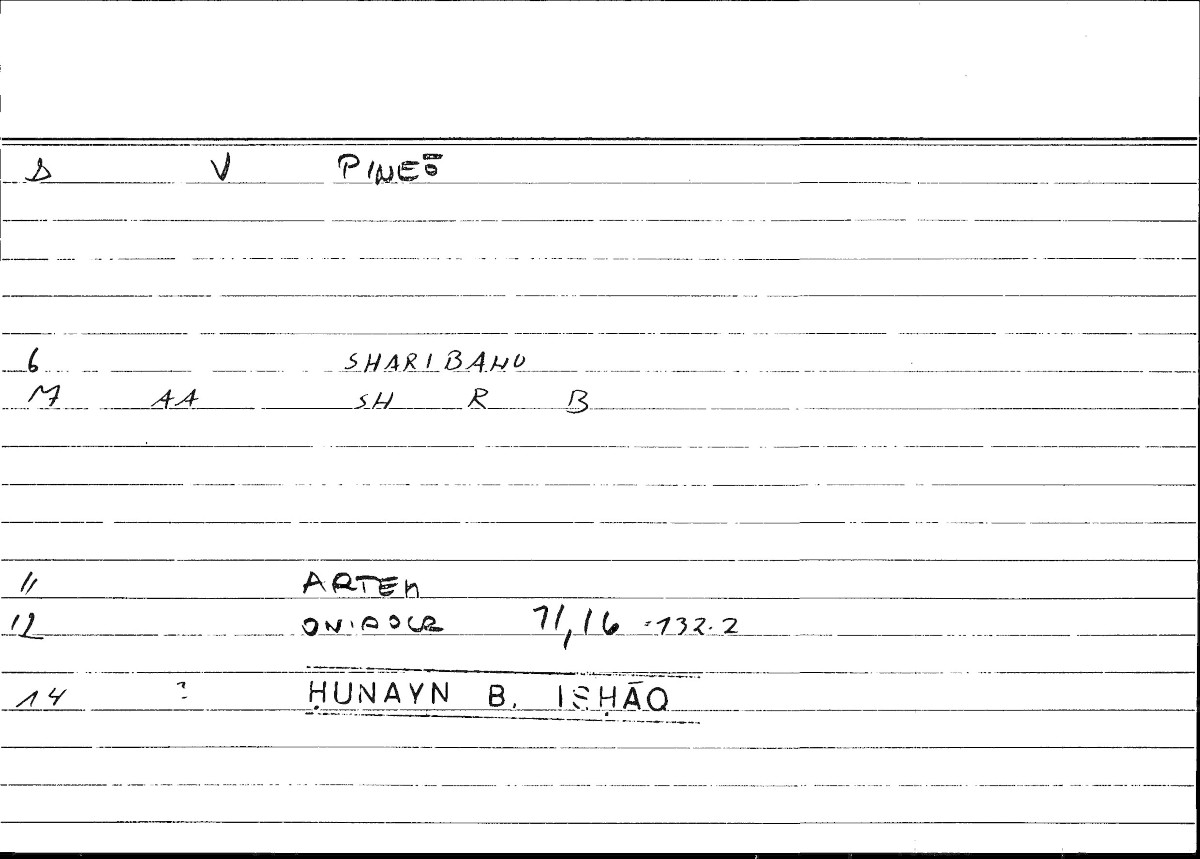 V PINEŌ
6 SHARIBANU
M AA SH R B
11 ARTEH
12 71,16 =132.2
14 ? ḤUNAYN B. ISḤĀQ